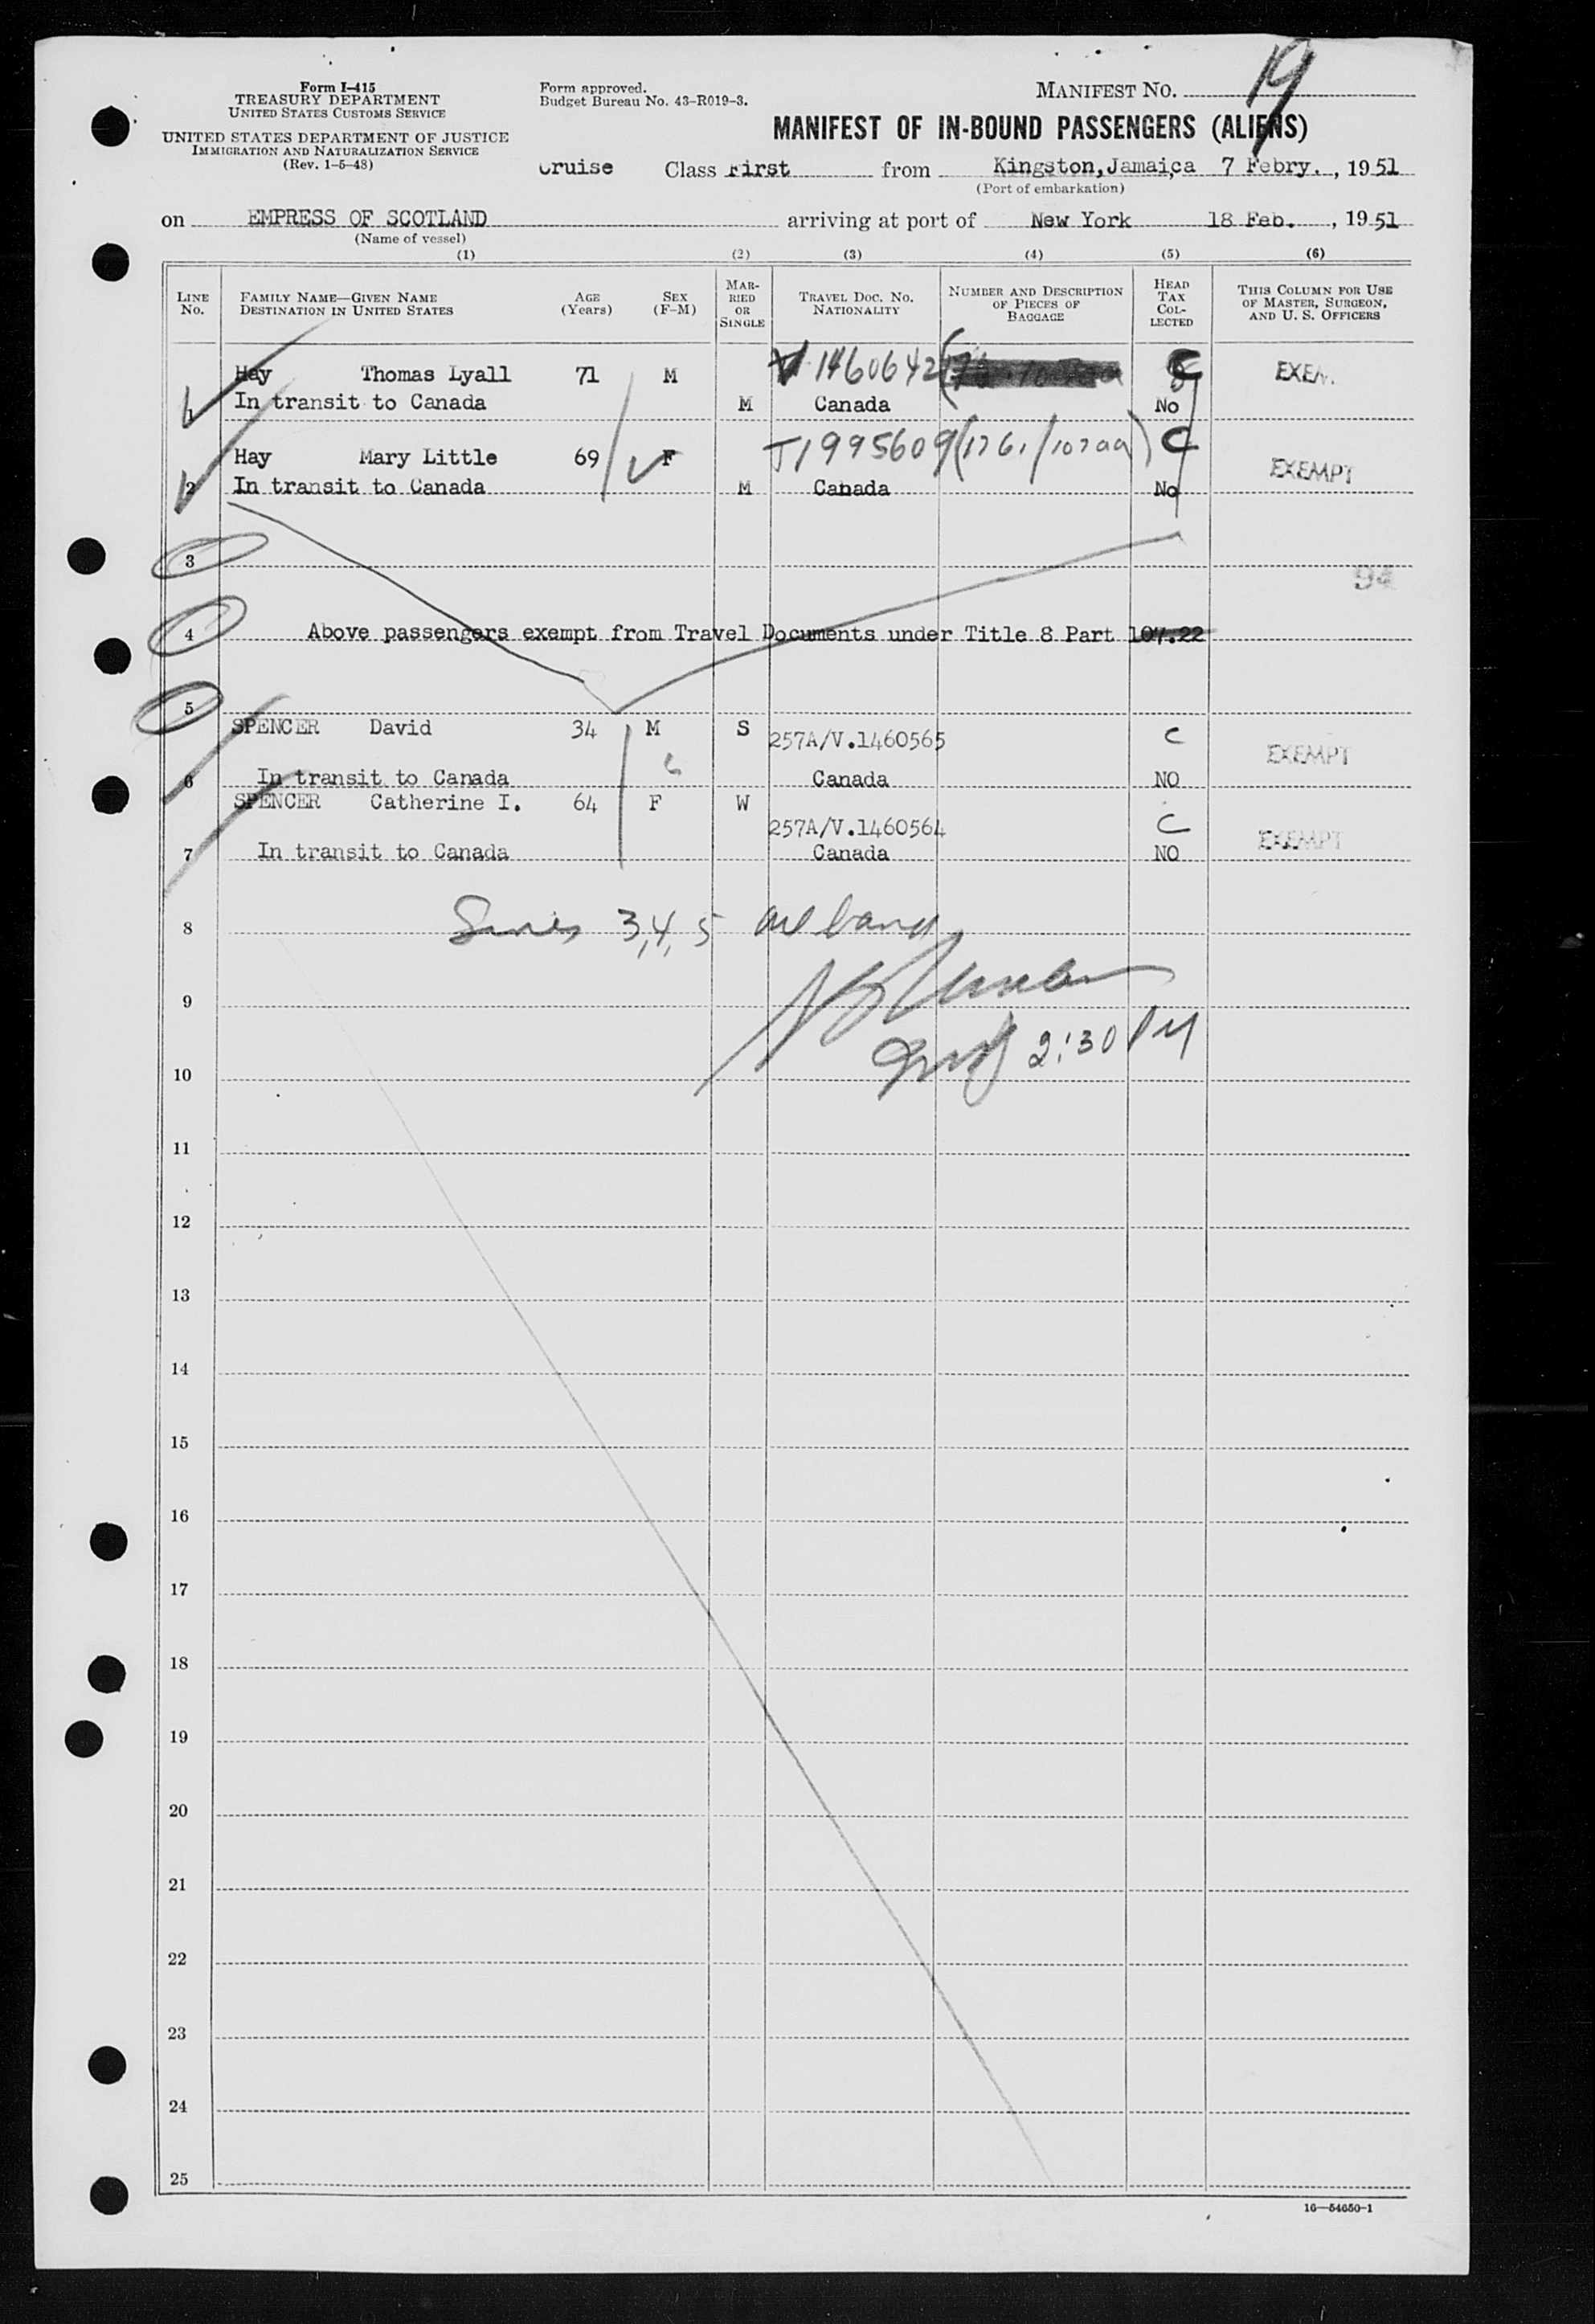 Form I-415
TREASURY DEPARTMENT
UNITED STATES CUSTOMS SERVICE
UNITED STATES DEPARTMENT OF JUSTICE
IMMIGRATION AND NATURALIZATION SERVICE
(Rev. 1-5-48)
Form approved.
Budget Bureau No. 43-R019-3.
MANIFEST NO. 19
MANIFEST OF IN-BOUND PASSENGERS (ALIENS)
Cruise Class First from Kingston, Jamaica 7 Febry., 1951
(Port of embarkation)
on EMPRESS OF SCOTLAND arriving at port of New York 18 Feb., 1951
(Name of vessel)
(1) (2) (3) (4) (5) (6)
LINE No. FAMILY NAME—GIVEN NAME DESTINATION IN UNITED STATES AGE (Years) SEX (F-M) MARRIED OR SINGLE TRAVEL DOC. NO. NATIONALITY NUMBER AND DESCRIPTION OF PIECES OF BAGGAGE HEAD TAX COLLECTED THIS COLUMN FOR USE OF MASTER, SURGEON, AND U. S. OFFICERS
Hay Thomas Lyall 71 M V 1460642 C EXEM.
1 In transit to Canada M Canada No
Hay Mary Little 69 F T1995609 (1761/107aa) C EXEMPT
2 In transit to Canada M Canada No
3
94
4 Above passengers exempt from Travel Documents under Title 8 Part 107.22
5
SPENCER David 34 M S 257A/V.1460565 C EXEMPT
6 In transit to Canada Canada NO
SPENCER Catherine I. 64 F W 257A/V.1460564 C EXEMPT
7 In transit to Canada Canada NO
8 3, 4, 5
9
2:30 PM
10
11
12
13
14
15
16
17
18
19
20
21
22
23
24
25
16—54650-1